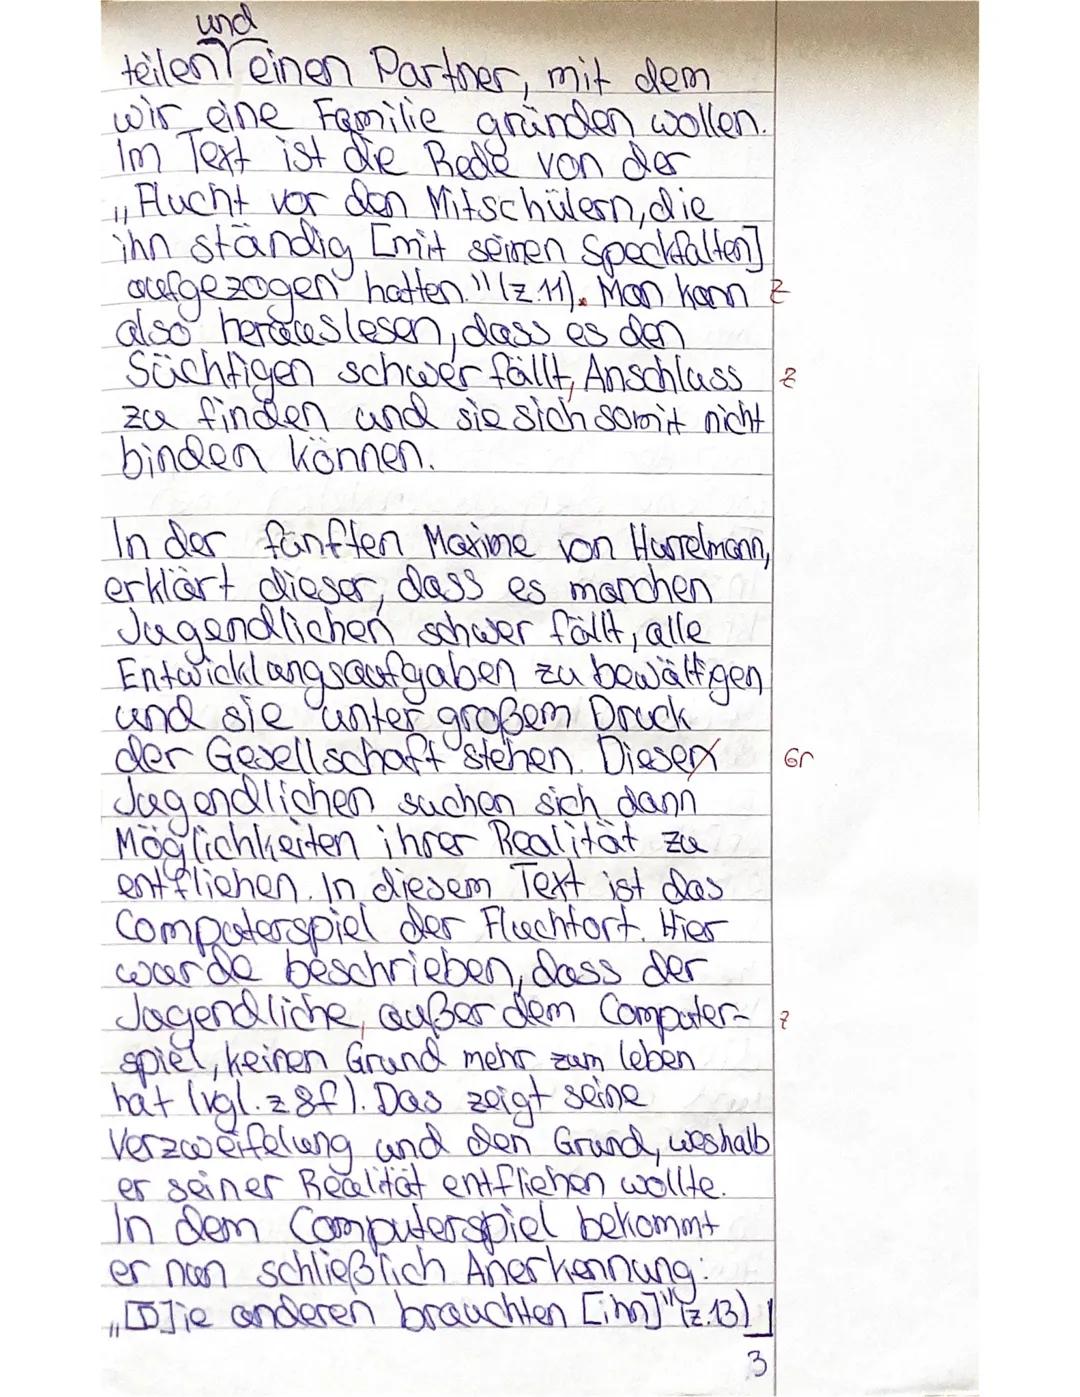 und
teilen einen Partner, mit dem
wir eine Familie gründen wollen.
Im Text ist die Rede von der
„Flucht vor den Mitschülern, die
ihn ständig [mit seinen Speckfalten]
aufgezogen hatten." (z.11). Man kann Z
also herauslesen, dass es den
Süchtigen schwer fällt, Anschluss Z
zu finden und sie sich somit nicht
binden können.
In der fünften Maxime von Hurrelmann,
erklärt dieser, dass es manchen
Jugendlichen schwer fällt, alle
Entwicklungsaufgaben zu bewältigen
und sie unter großem Druck
der Gesellschaft stehen. Diesen Gr
Jugendlichen suchen sich dann
Möglichkeiten ihrer Realität zu
entfliehen. In diesem Text ist das
Computerspiel der Fluchtort. Hier
wurde beschrieben, dass der
Jugendliche, außer dem Computer- Z
spiel, keinen Grund mehr zum leben
hat (vgl. z 8f). Das zeigt seine
Verzweifelung und den Grund, weshalb
er seiner Realität entfliehen wollte.
In dem Computerspiel bekommt
er nun schließlich Anerkennung:
„[D]ie anderen brauchten [ihn]" (z.13)
3